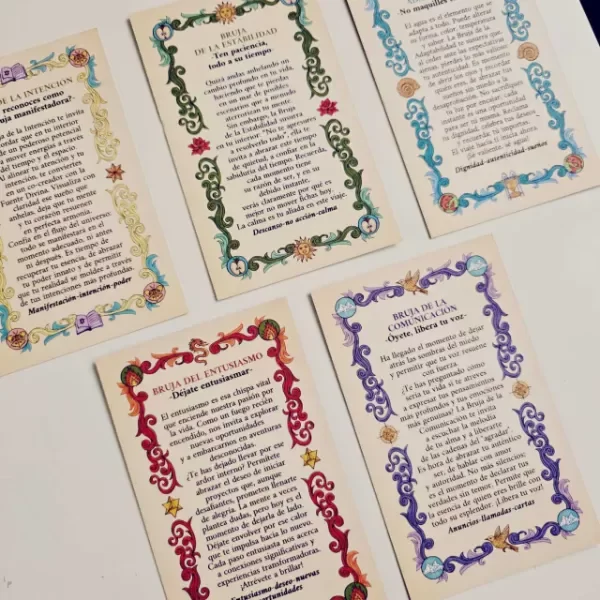 DE LA INTENCIÓN
reconoces como
bruja manifestadora?-
de la Intención te invita
de un poderoso potencial
a mover energías a través
del tiempo y el espacio.
Al alinear tu atención y tu
intención, te conviertes
en un co-creador con la
Fuente Divina. Visualiza con
claridad ese sueño que
anhelas, deja que tu mente
y tu corazón resuenen
en perfecta armonía.
Confía en el flujo del universo:
todo se manifestará en el
momento adecuado, ni antes
ni después. Es tiempo de
recuperar tu esencia, de abrazar
tu poder innato y de permitir
que tu realidad se moldee a través
de tus intenciones más profundas.
Manifestación-intención-poder
BRUJA
DE LA ESTABILIDAD
-Ten paciencia,
todo a su tiempo-
Quizá andas anhelando un
cambio profundo en tu vida,
haciendo que te pierdas
en un mar de posibles
escenarios que a menudo
aterrorizan tu mente.
Sin embargo, la Bruja
de la Estabilidad susurra
en tu interior: "No te apresures
a resolverlo todo", ella te
invita a abrazar este tiempo
de quietud, a confiar en la
sabiduría del tiempo. Recuerda,
cada momento tiene
su razón de ser, y en su
debido instante,
verás claramente por qué es
mejor no mover fichas hoy.
La calma es tu aliada en este viaje.
Descanso-no acción-calma
-No maquilles
El agua es el elemento que se
adapta a todo. Puede alterar
su forma, color, temperatura
y sabor. La Bruja de la
Dignidad-autenticidad-sueños
BRUJA DEL ENTUSIASMO
-Déjate entusiasmar-
El entusiasmo es esa chispa vital
que enciende nuestra pasión por
la vida. Como un fuego recién
encendido, nos invita a explorar
nuevas oportunidades
y a embarcarnos en aventuras
desconocidas.
¿Te has dejado llevar por ese
ardor interno? Permítete
abrazar el deseo de iniciar
proyectos que, aunque
desafiantes, prometen llenarte
de alegría. La mente a veces
plantea dudas, pero hoy es el
momento de dejarla de lado.
Déjate envolver por ese calor
que te impulsa hacia lo nuevo.
Cada paso entusiasta nos acerca
a conexiones significativas y
experiencias transformadoras.
¡Atrévete a brillar!
Entusiasmo-deseo-nuevas
oportunidades
BRUJA DE LA
COMUNICACIÓN
-Óyete, libera tu voz-
Ha llegado el momento de dejar
atrás las sombras del miedo
y permitir que tu voz resuene
con fuerza.
¿Te has preguntado cómo
sería tu vida si te atreves
a expresar tus pensamientos
más profundos y tus emociones
más genuinas? La Bruja de la
Comunicación te invita
a escuchar la melodía
de tu alma y liberarte
de las cadenas del "agradar".
Es hora de abrazar tu auténtico
ser, de hablar con amor
y autoridad. No más silencios:
es el momento de declarar tus
verdades sin temor. Permite que
la esencia de quien eres brille con
todo su esplendor. ¡Libera tu voz!
Anuncios-llamadas-cartas